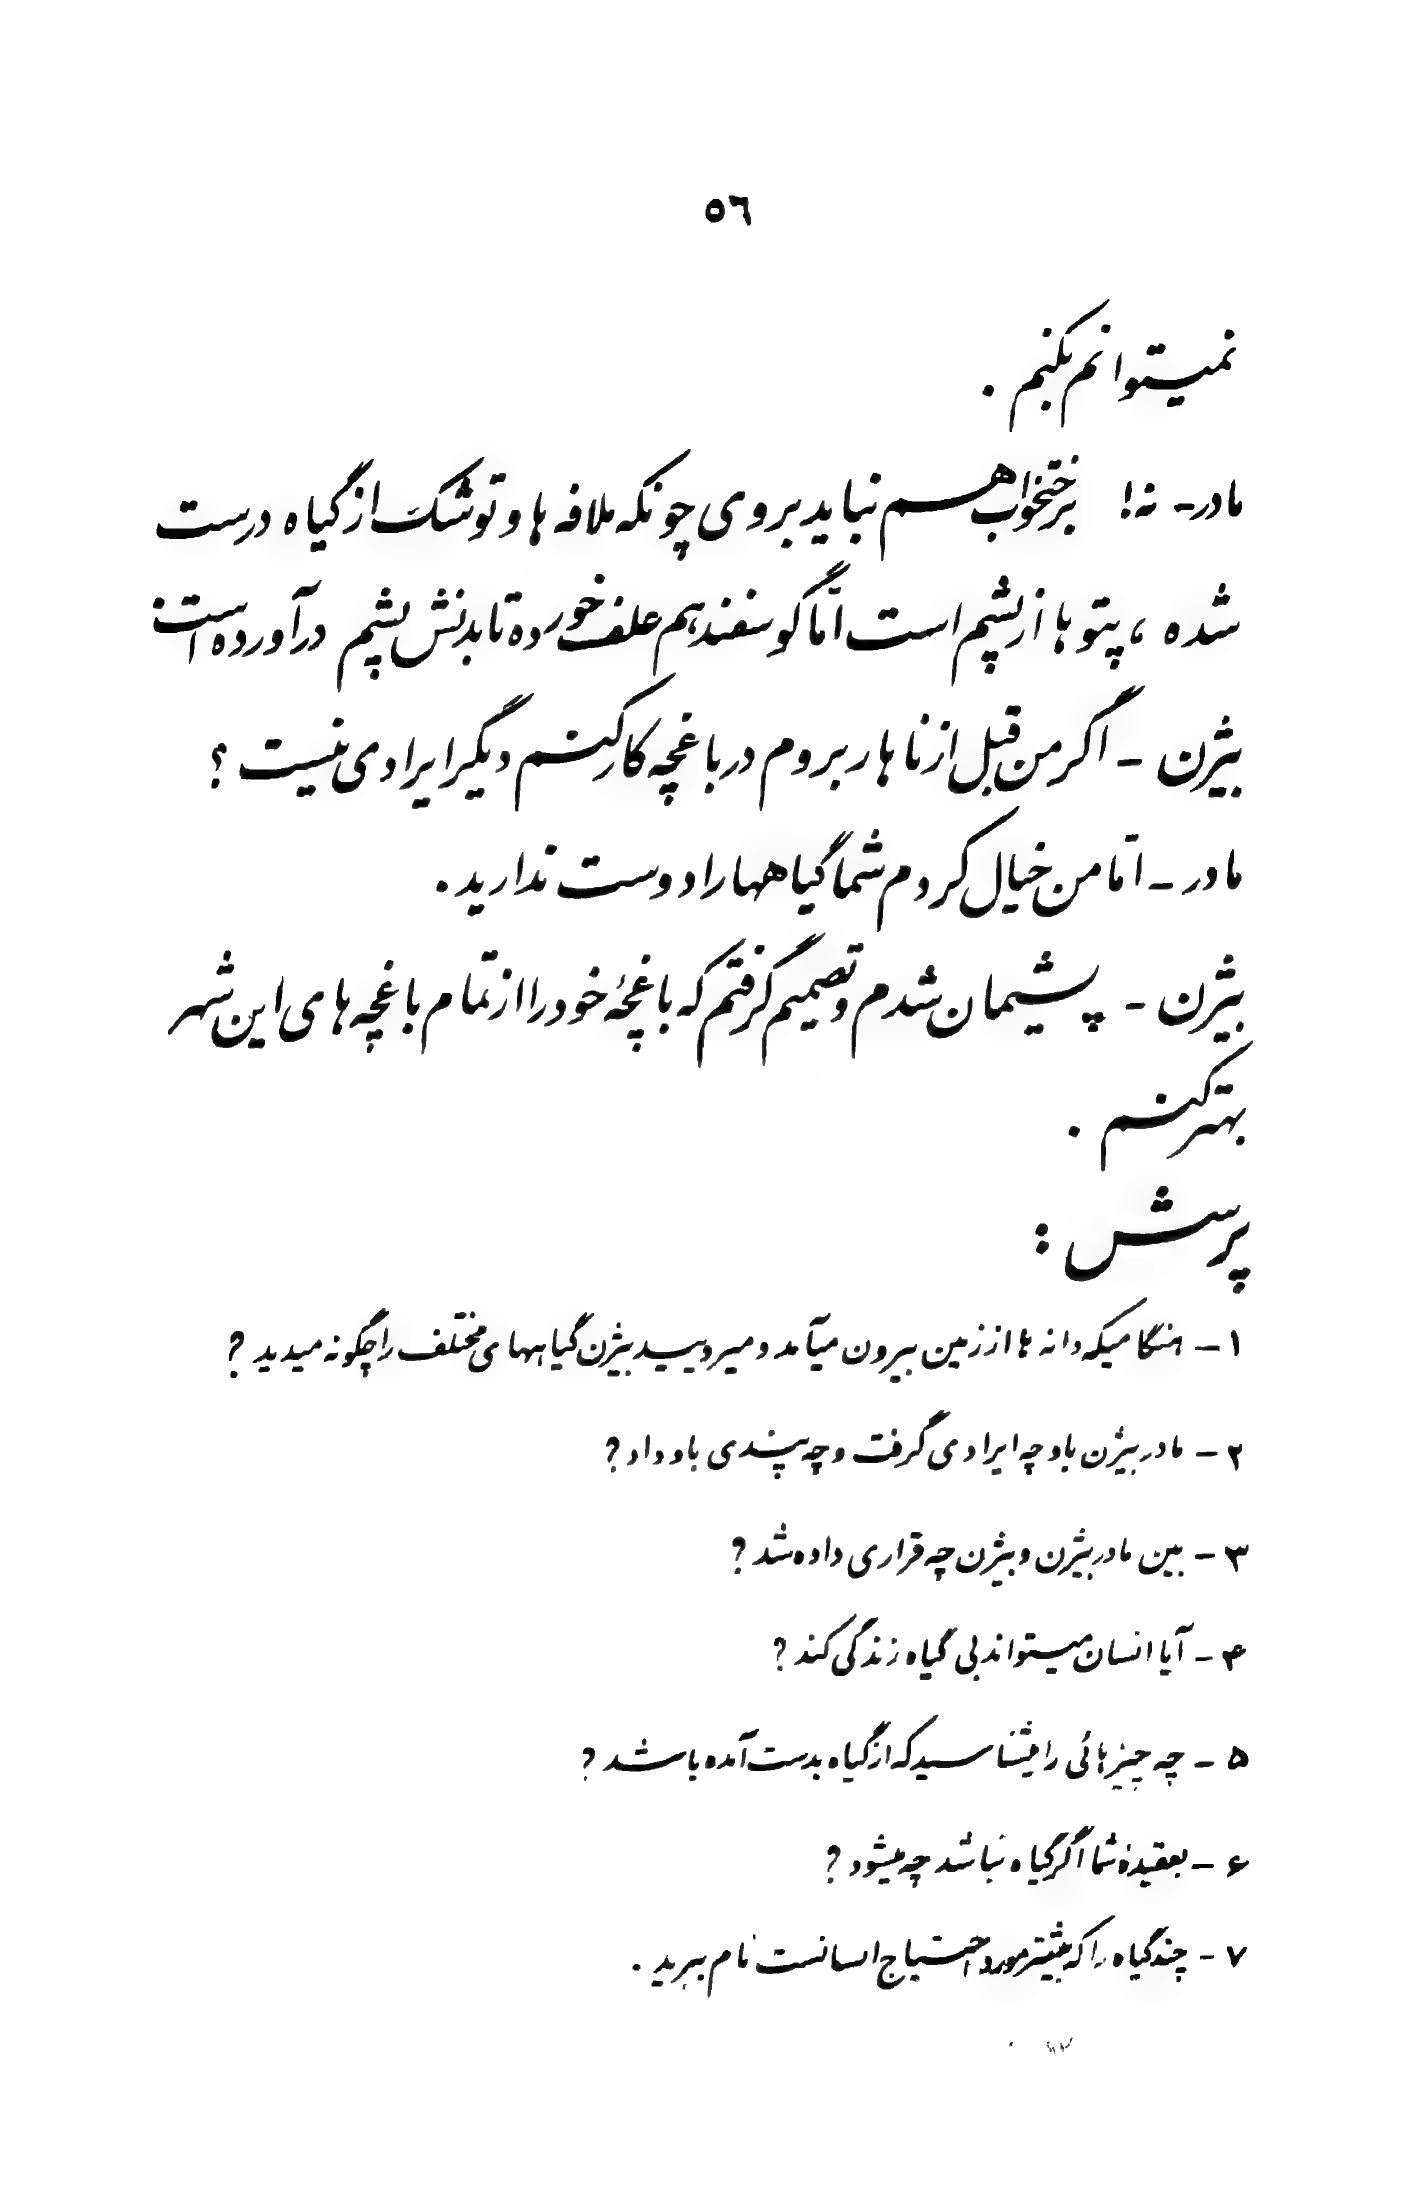 ٥٦
نمیتوانم بکنم .
مادر- نه! برختخواب هم نباید بروی چونکه ملافه ها و توشک از گیاه درست
شده ، پتو ها از پشم است امّا گوسفند هم علف خورده تا بدنش پشم درآورده است
بیژن - اگر من قبل از ناهار بروم در باغچه کار کنم دیگر ایرادی نیست ؟
مادر - امّا من خیال کردم شما گیاهها را دوست ندارید .
بیژن - پشیمان شدم و تصمیم گرفتم که باغچهٔ خود را از تمام باغچه های این شهر
بهتر کنم .
پرسش :
۱ - هنگامیکه دانه ها از زمین بیرون میآمد و میرویید بیژن گیاههای مختلف را چگونه میدید ؟
۲ - مادر بیژن باو چه ایرادی گرفت و چه پندی باو داد ؟
۳ - بین مادر بیژن و بیژن چه قراری داده شد ؟
۴ - آیا انسان میتواند بی گیاه زندگی کند ؟
۵ - چه چیزهائی را میشناسید که از گیاه بدست آمده باشد ؟
۶ - بعقیدهٔ شما اگر گیاه نباشد چه میشود ؟
۷ - چند گیاه را که بیشتر مورد احتیاج انسانست نام ببرید .